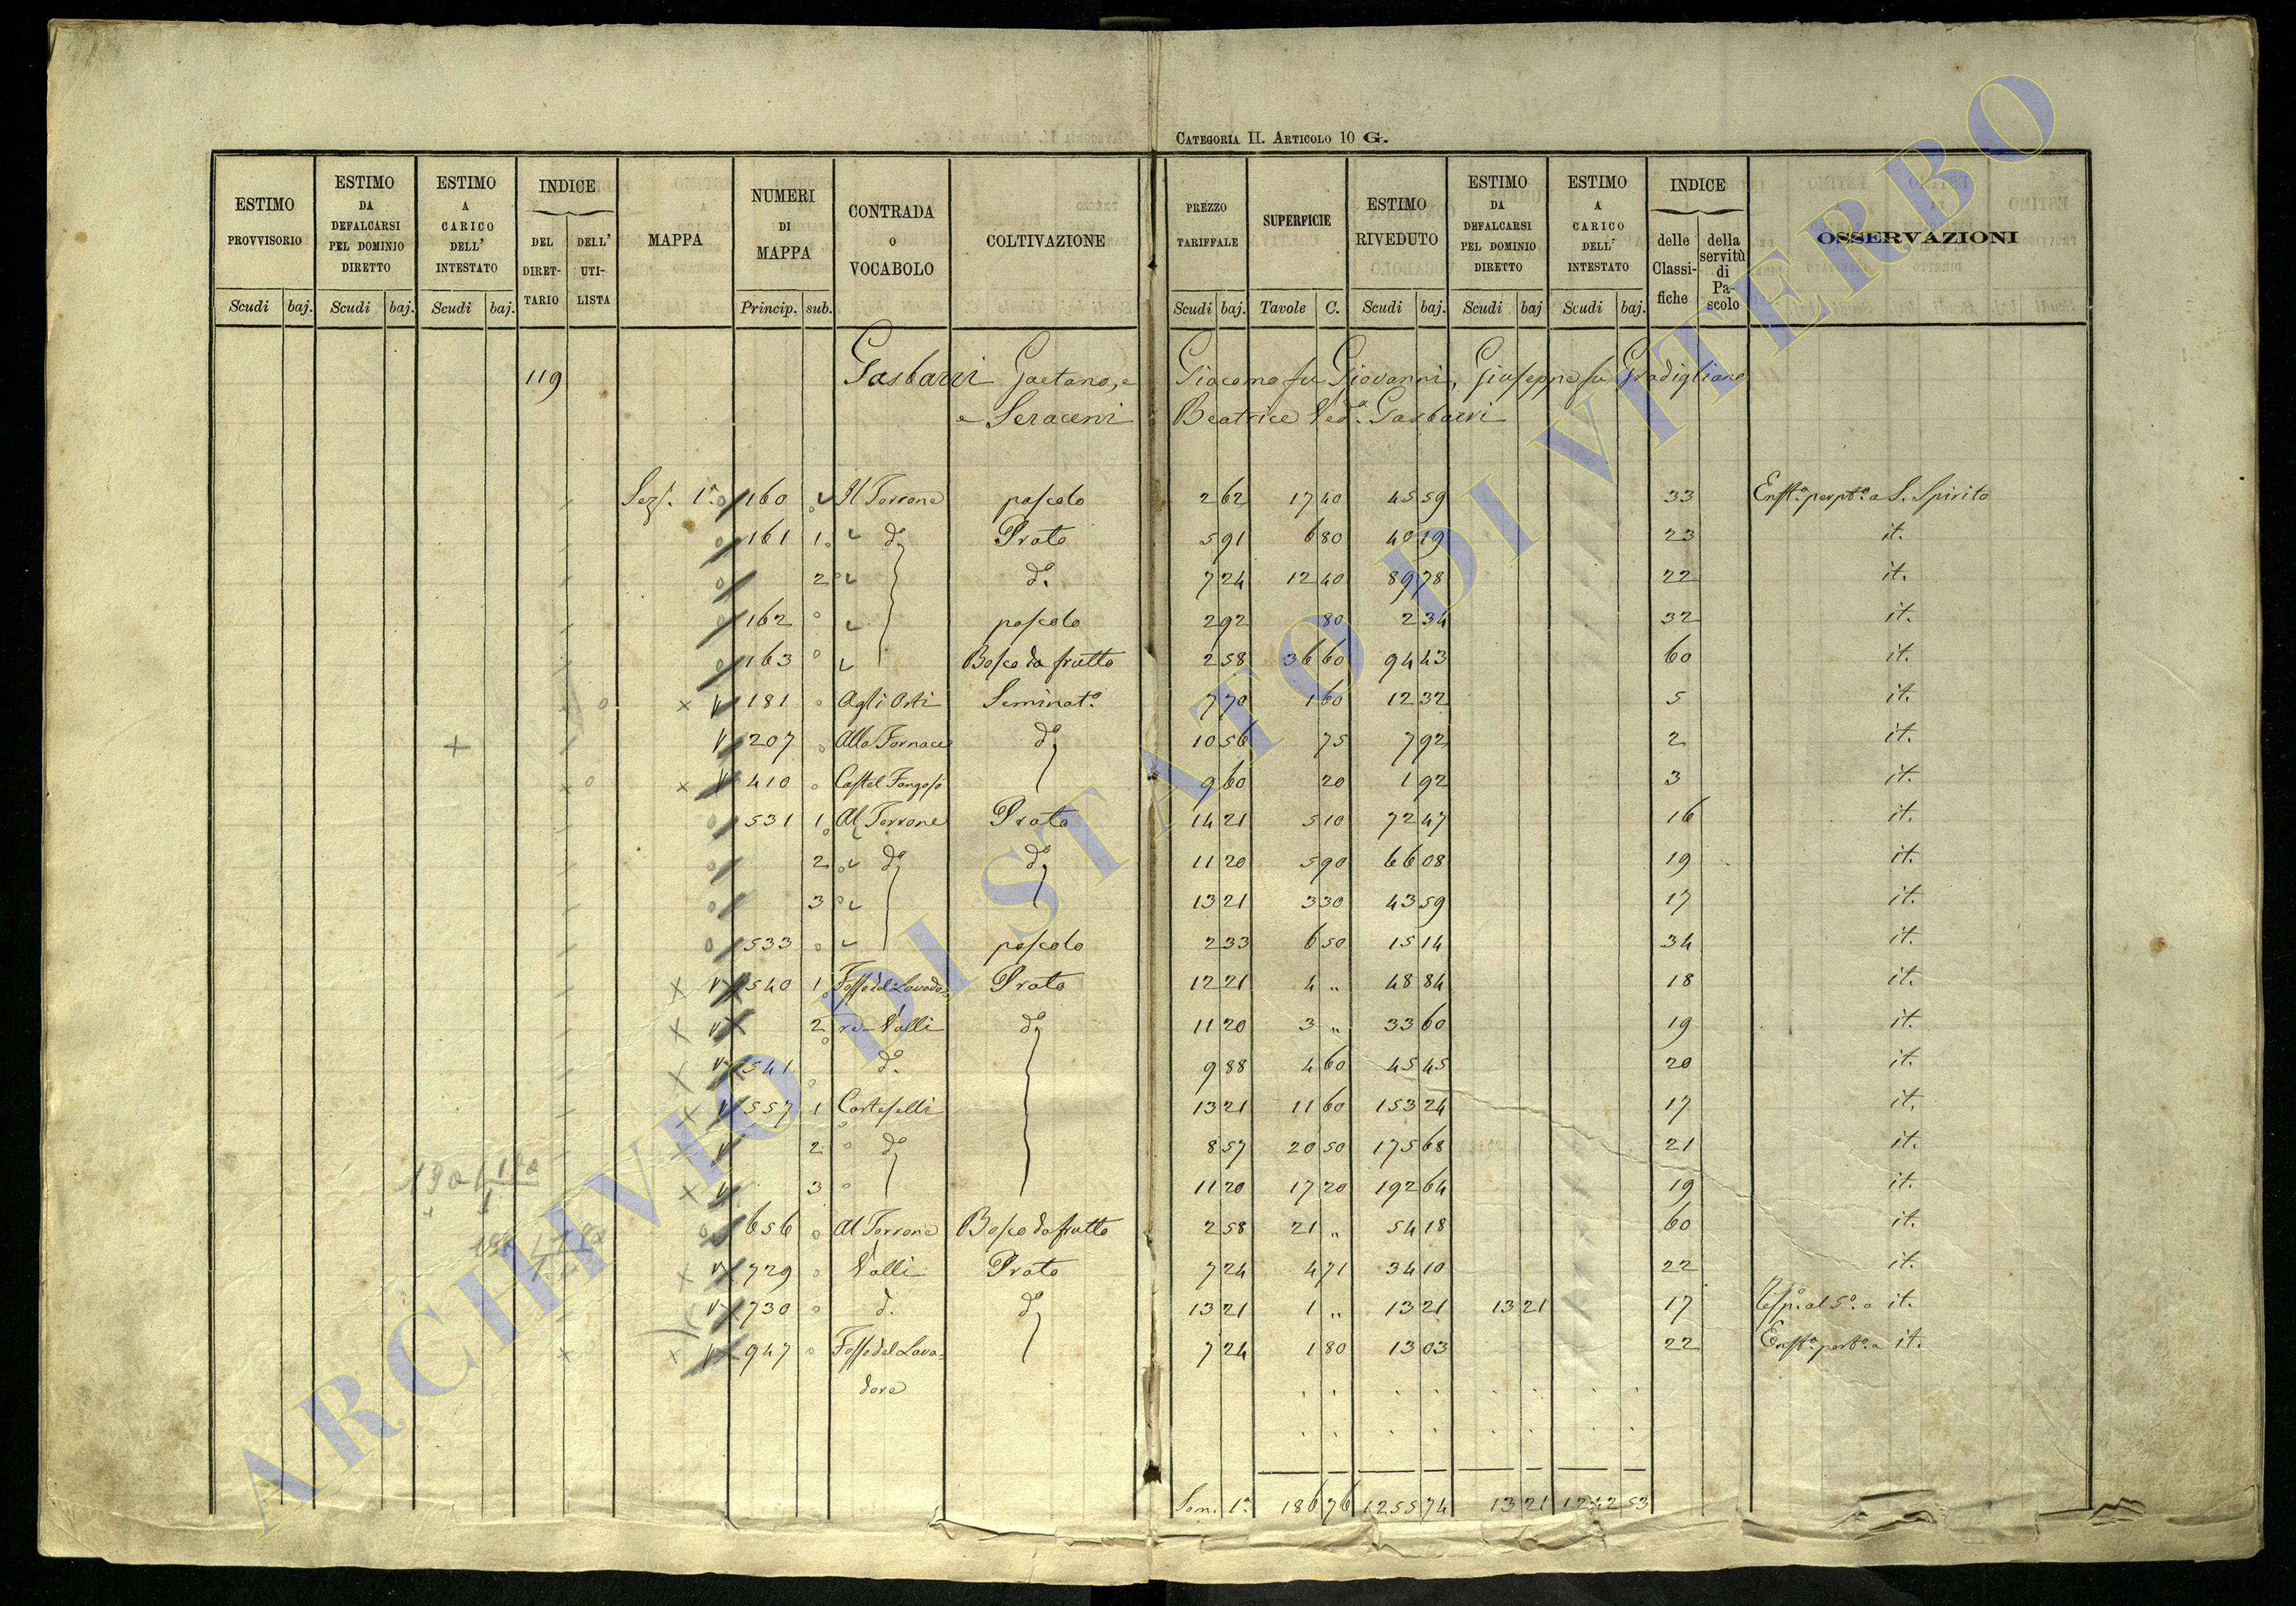 CATEGORIA II. ARTICOLO 10 G.
ESTIMO PROVVISORIO | ESTIMO DA DEFALCARSI PEL DOMINIO DIRETTO | ESTIMO A CARICO DELL' INTESTATO | INDICE DEL DIRET-TARIO | DELL' UTI-LISTA | MAPPA | NUMERI DI MAPPA | CONTRADA O VOCABOLO | COLTIVAZIONE | PREZZO TARIFFALE | SUPERFICIE | ESTIMO RIVEDUTO | ESTIMO DA DEFALCARSI PEL DOMINIO DIRETTO | ESTIMO A CARICO DELL' INTESTATO | INDICE delle Classi-fiche | della servitù di Pa-scolo | OSSERVAZIONI
Scudi baj. Scudi baj. Scudi baj. Princip. sub. Scudi baj. Tavole C. Scudi baj. Scudi baj Scudi baj.
119 Gasbarri Gaetano, e Giacomo fu Giovanni, Giuseppe fu Gradigliano
e Seraceni Beatrice Ved.a Gasbarri
Sez. 1.a 160 Il Torrone pascolo 2 62 17 40 45 59 33 Enft.a perpt.a a S. Spirito
161 1 d.o Prato 5 91 6 80 40 19 23 it.
2 d.o 7 24 12 40 89 78 22 it.
162 pascolo 2 92 80 2 34 32 it.
163 Bosco da frutto 2 58 36 60 94 43 60 it.
181 Agli Orti Seminat.o 7 70 1 60 12 32 5 it.
207 Alla Fornace d.o 10 56 75 7 92 2 it.
410 Castel Fangoso 9 60 20 1 92 3 it.
531 1 Al Torrone Prato 14 21 5 10 72 47 16 it.
2 d.o d.o 11 20 5 90 66 08 19 it.
3 13 21 3 30 43 59 17 it.
533 pascolo 2 33 6 50 15 14 34 it.
540 1 Fosso del Lavado= Prato 12 21 4 „ 48 84 18 it.
2 re_Valli d.o 11 20 3 „ 33 60 19 it.
541 d.o 9 88 4 60 45 45 20 it.
557 1 Corteselli 13 21 11 60 153 24 17 it.
2 d.o 8 57 20 50 175 68 21 it.
3 11 20 17 20 192 64 19 it.
656 Al Torrone Bosco da frutto 2 58 21 „ 54 18 60 it.
729 Valli Prato 7 24 4 71 34 10 22 it.
730 d. d.o 13 21 1 „ 13 21 13 21 17 al 5.o a it.
947 Fosso del Lava= 7 24 1 80 13 03 22 Enft.a pert.a a it.
dore
Som. 1.a 186 76 1255 74 13 21 1242 53
ARCHIVIO DI STATO DI VITERBO